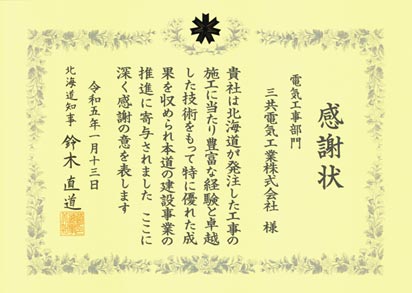 感謝状
電気工事部門
三共電気工業株式会社 様
貴社は北海道が発注した工事の
施工に当たり豊富な経験と卓越
した技術をもって特に優れた成
果を収められ本道の建設事業の
推進に寄与されました ここに
深く感謝の意を表します
令和五年一月十三日
北海道知事 鈴木 直道